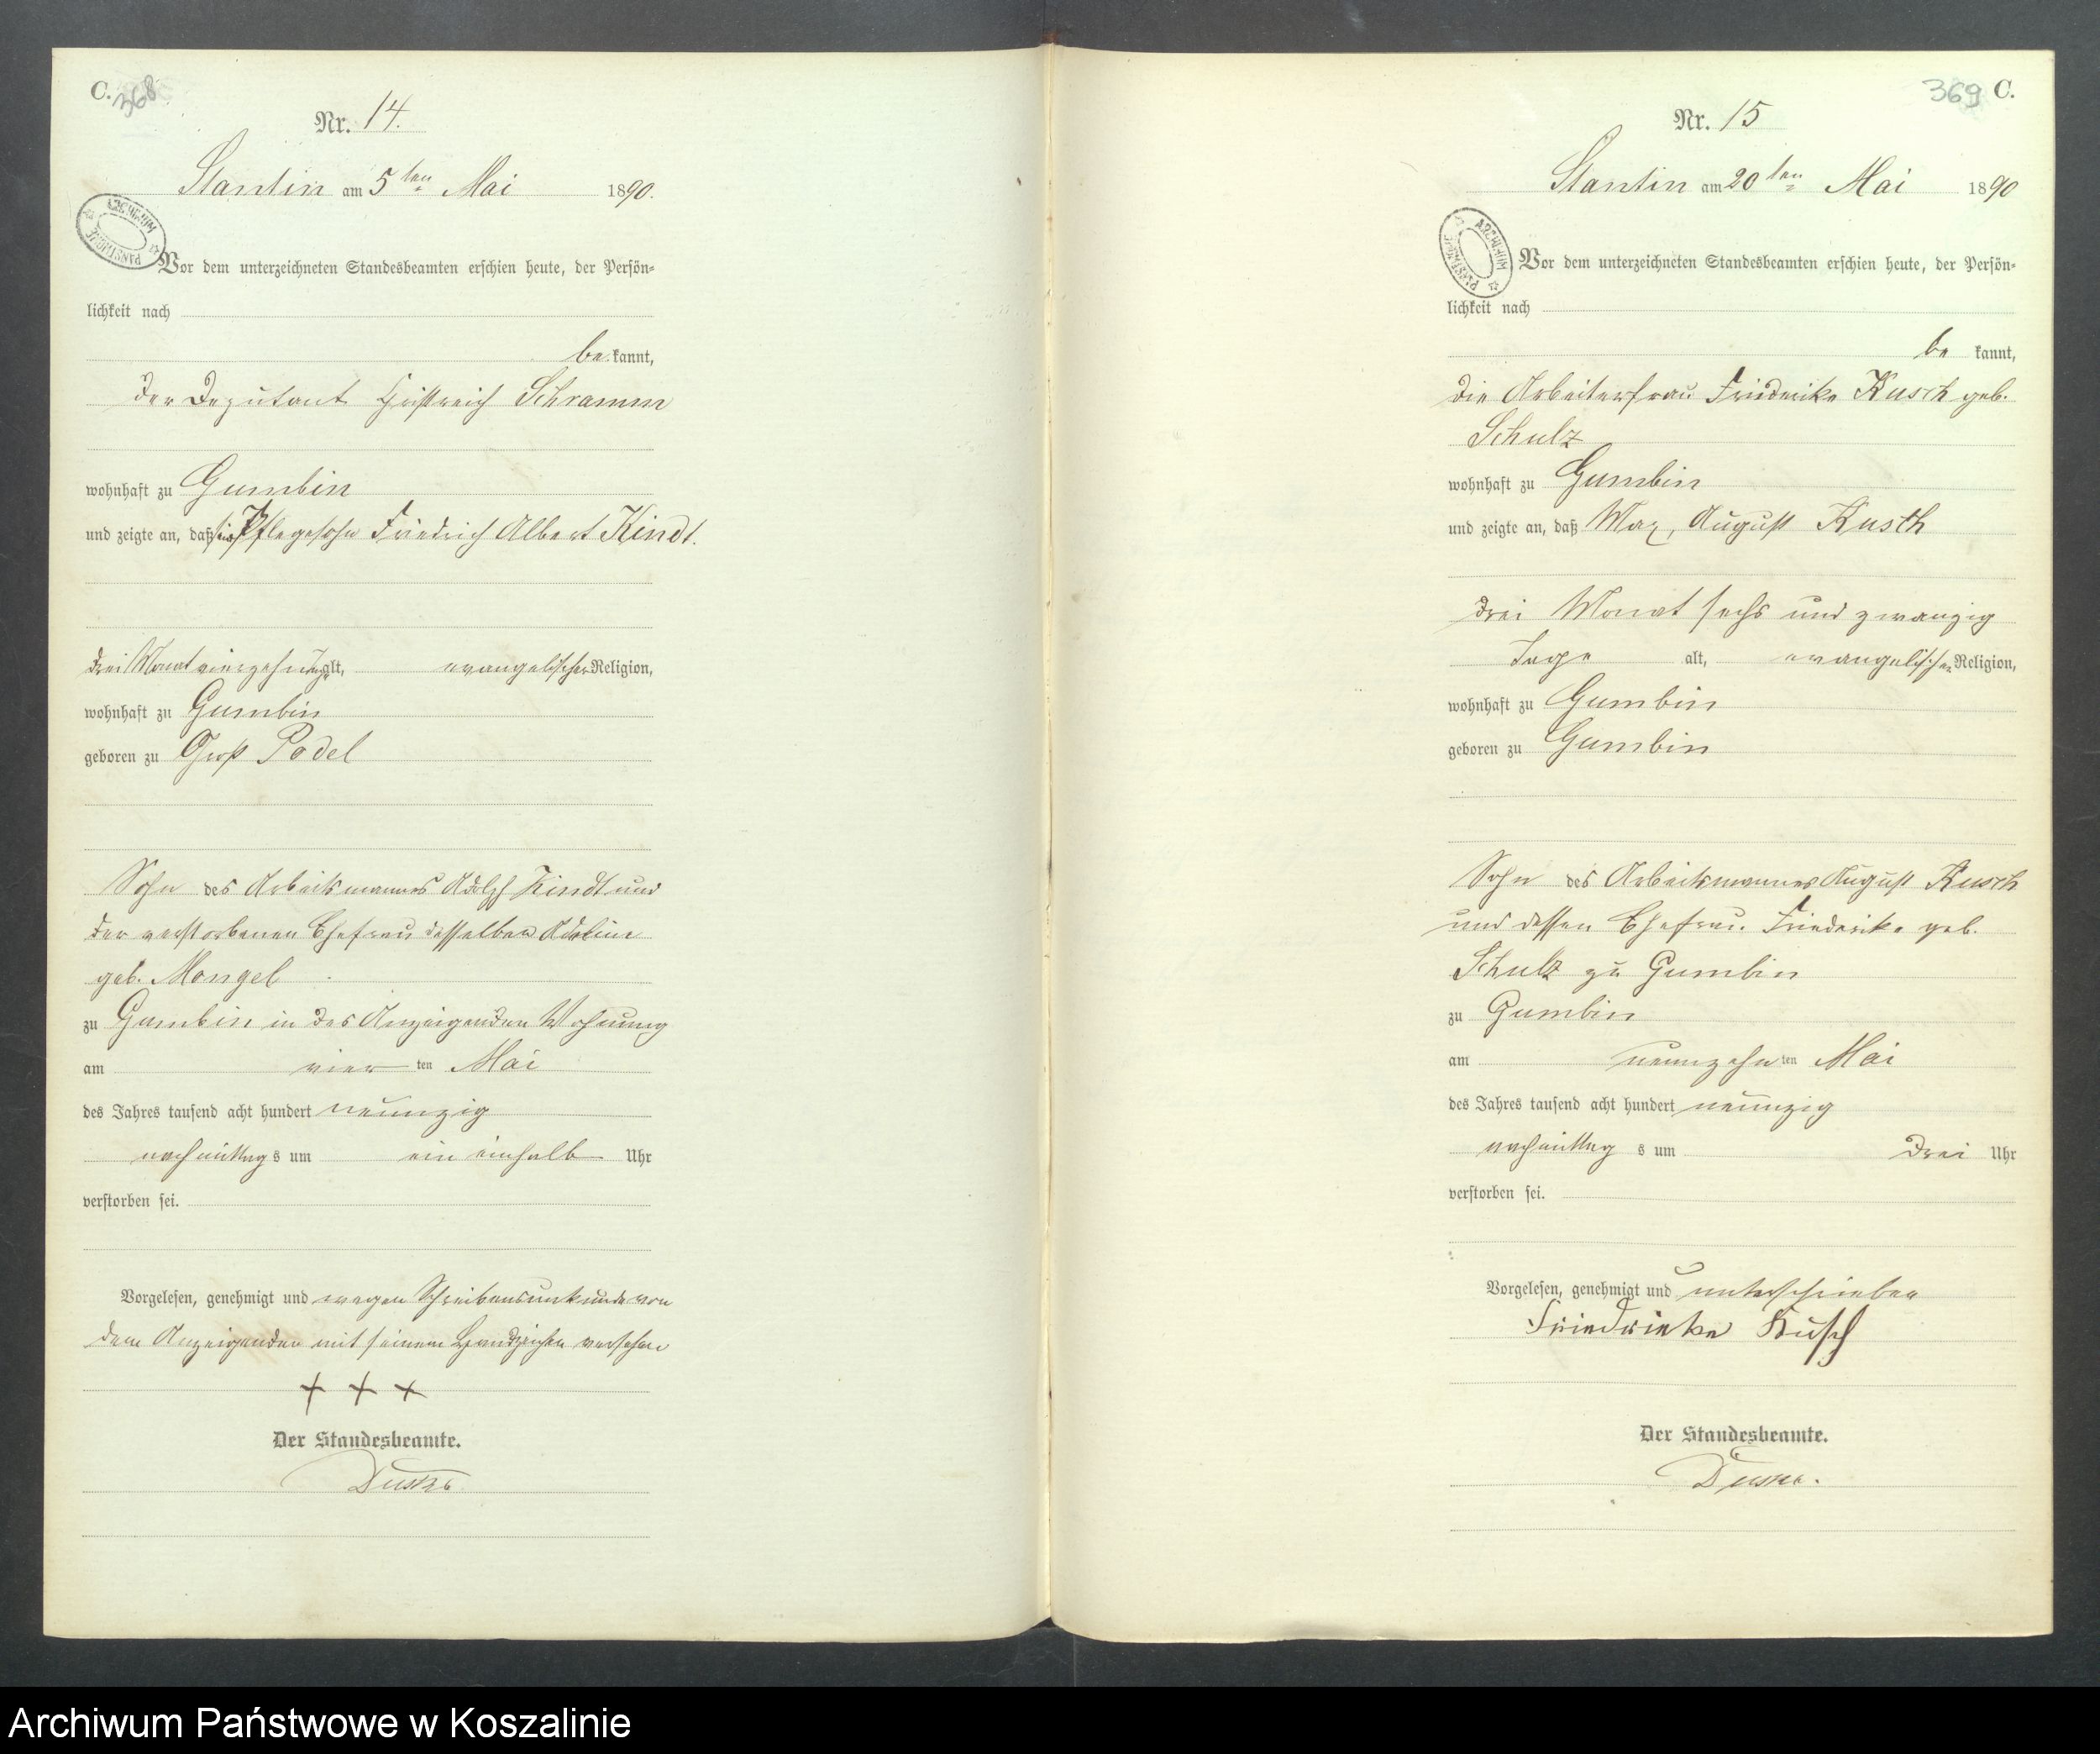 C.
368
Nr. 14.
Stantin am 5ten Mai 1890.
ARCHIWUM PAŃSTWOWE
Vor dem unterzeichneten Standesbeamten erschien heute, der Persön=
lichkeit nach
be kannt,
der Deputant Schramm
wohnhaft zu Gumbin
und zeigte an, daß sein Pflegesohn Friedrich Albert Kindt.
drei Monat vierzehn Tage alt, evangelischer Religion,
wohnhaft zu Gumbin
geboren zu Groß Podel
Sohn des Arbeitsmannes Adolph Kindt und
der verstorbenen Ehefrau desselben
geb. Mangel
zu Gumbin in des Anzeigenden Wohnung
am vier ten Mai
des Jahres tausend acht hundert neunzig
nachmittag s um ein einhalb Uhr
verstorben sei.
Vorgelesen, genehmigt und wegen Schreibensunkunde von
dem Anzeigenden mit seinem Handzeichen versehen
+ + +
Der Standesbeamte.
369 C.
Nr. 15
Stantin am 20ten Mai 1890
ARCHIWUM PAŃSTWOWE
Vor dem unterzeichneten Standesbeamten erschien heute, der Persön=
lichkeit nach
be kannt,
die Arbeiterfrau Friederike Kusch geb.
Schulz
wohnhaft zu Gumbin
und zeigte an, daß Max, August Kusch
drei Monat sechs und zwanzig
Tage alt, evangelischer Religion,
wohnhaft zu Gumbin
geboren zu Gumbin
Sohn des Arbeitsmannes August Kusch
und dessen Ehefrau Friederike geb.
Schulz zu Gumbin
zu Gumbin
am neunzehn ten Mai
des Jahres tausend acht hundert neunzig
nachmittag s um drei Uhr
verstorben sei.
Vorgelesen, genehmigt und unterschrieben
Friedrieke Kusch
Der Standesbeamte.
Archiwum Państwowe w Koszalinie